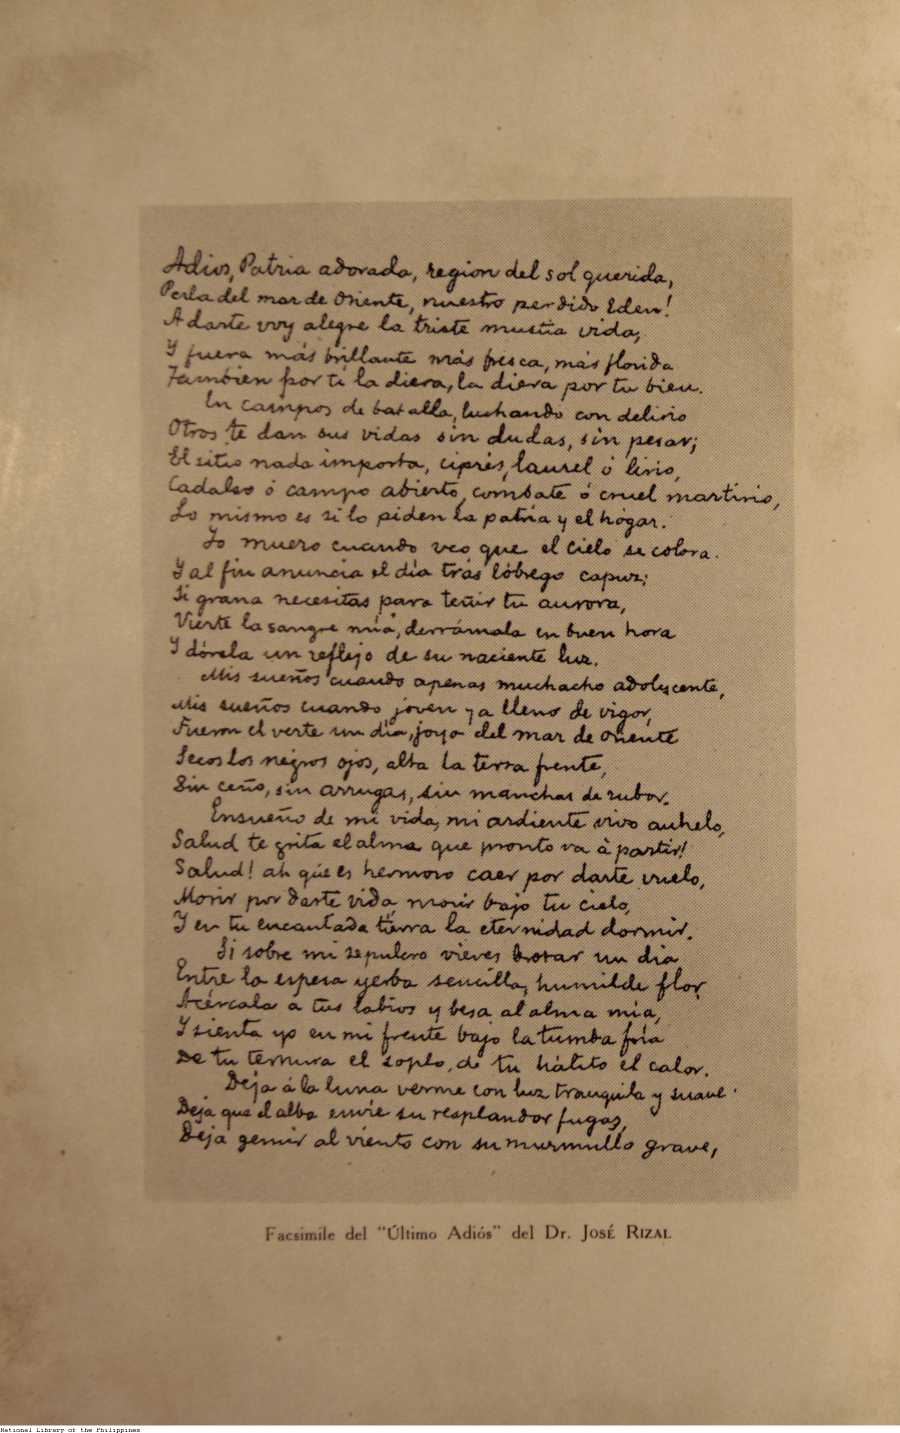 Adios, Patria adorada, region del sol querida,
Perla del mar de Oriente, nuestro perdido Eden!
A darte voy alegre la triste mustia vida,
Y fuera más brillante más fresca, más florida
Tambien por tí la diera, la diera por tu bien.
En campos de batalla, luchando con delirio
Otros te dan sus vidas sin dudas, sin pesar;
El sitio nada importa, ciprés, laurel ó lirio,
Cadalso ó campo abierto, combate ó cruel martirio,
Lo mismo es si lo piden la patria y el hogar.
Yo muero cuando veo que el cielo se colora
Y al fin anuncia el día trás lóbrego capuz;
Si grana necesitas para teñir tu aurora,
Vierte la sangre mía, derrámala en buen hora
Y dórela un reflejo de su naciente luz.
Mis sueños cuando apenas muchacho adolescente,
Mis sueños cuando joven ya lleno de vigor,
Fueron el verte un día, joya del mar de oriente
Secos los negros ojos, alta la tersa frente,
Sin ceño, sin arrugas, sin manchas de rubor.
Ensueño de mi vida, mi ardiente vivo anhelo,
Salud te grita el alma que pronto va á partir!
Salud! ah qúe es hermoso caer por darte vuelo,
Morir por darte vida, morir bajo tu cielo,
Y en tu encantada tierra la eternidad dormir.
Si sobre mi sepulcro vieres brotar un dia
Entre la espesa yerba sencilla, humilde flor,
Acércala a tus labios y besa al alma mía,
Y sienta yo en mi frente bajo la tumba fría
De tu ternura el soplo, de tu hálito el calor.
Deja á la luna verme con luz tranquila y suave
Deja que el alba envíe su resplandor fugaz,
Deja gemir al viento con su murmullo grave,
Facsimile del "Último Adiós" del Dr. JOSÉ RIZAL
National Library of the Philippines